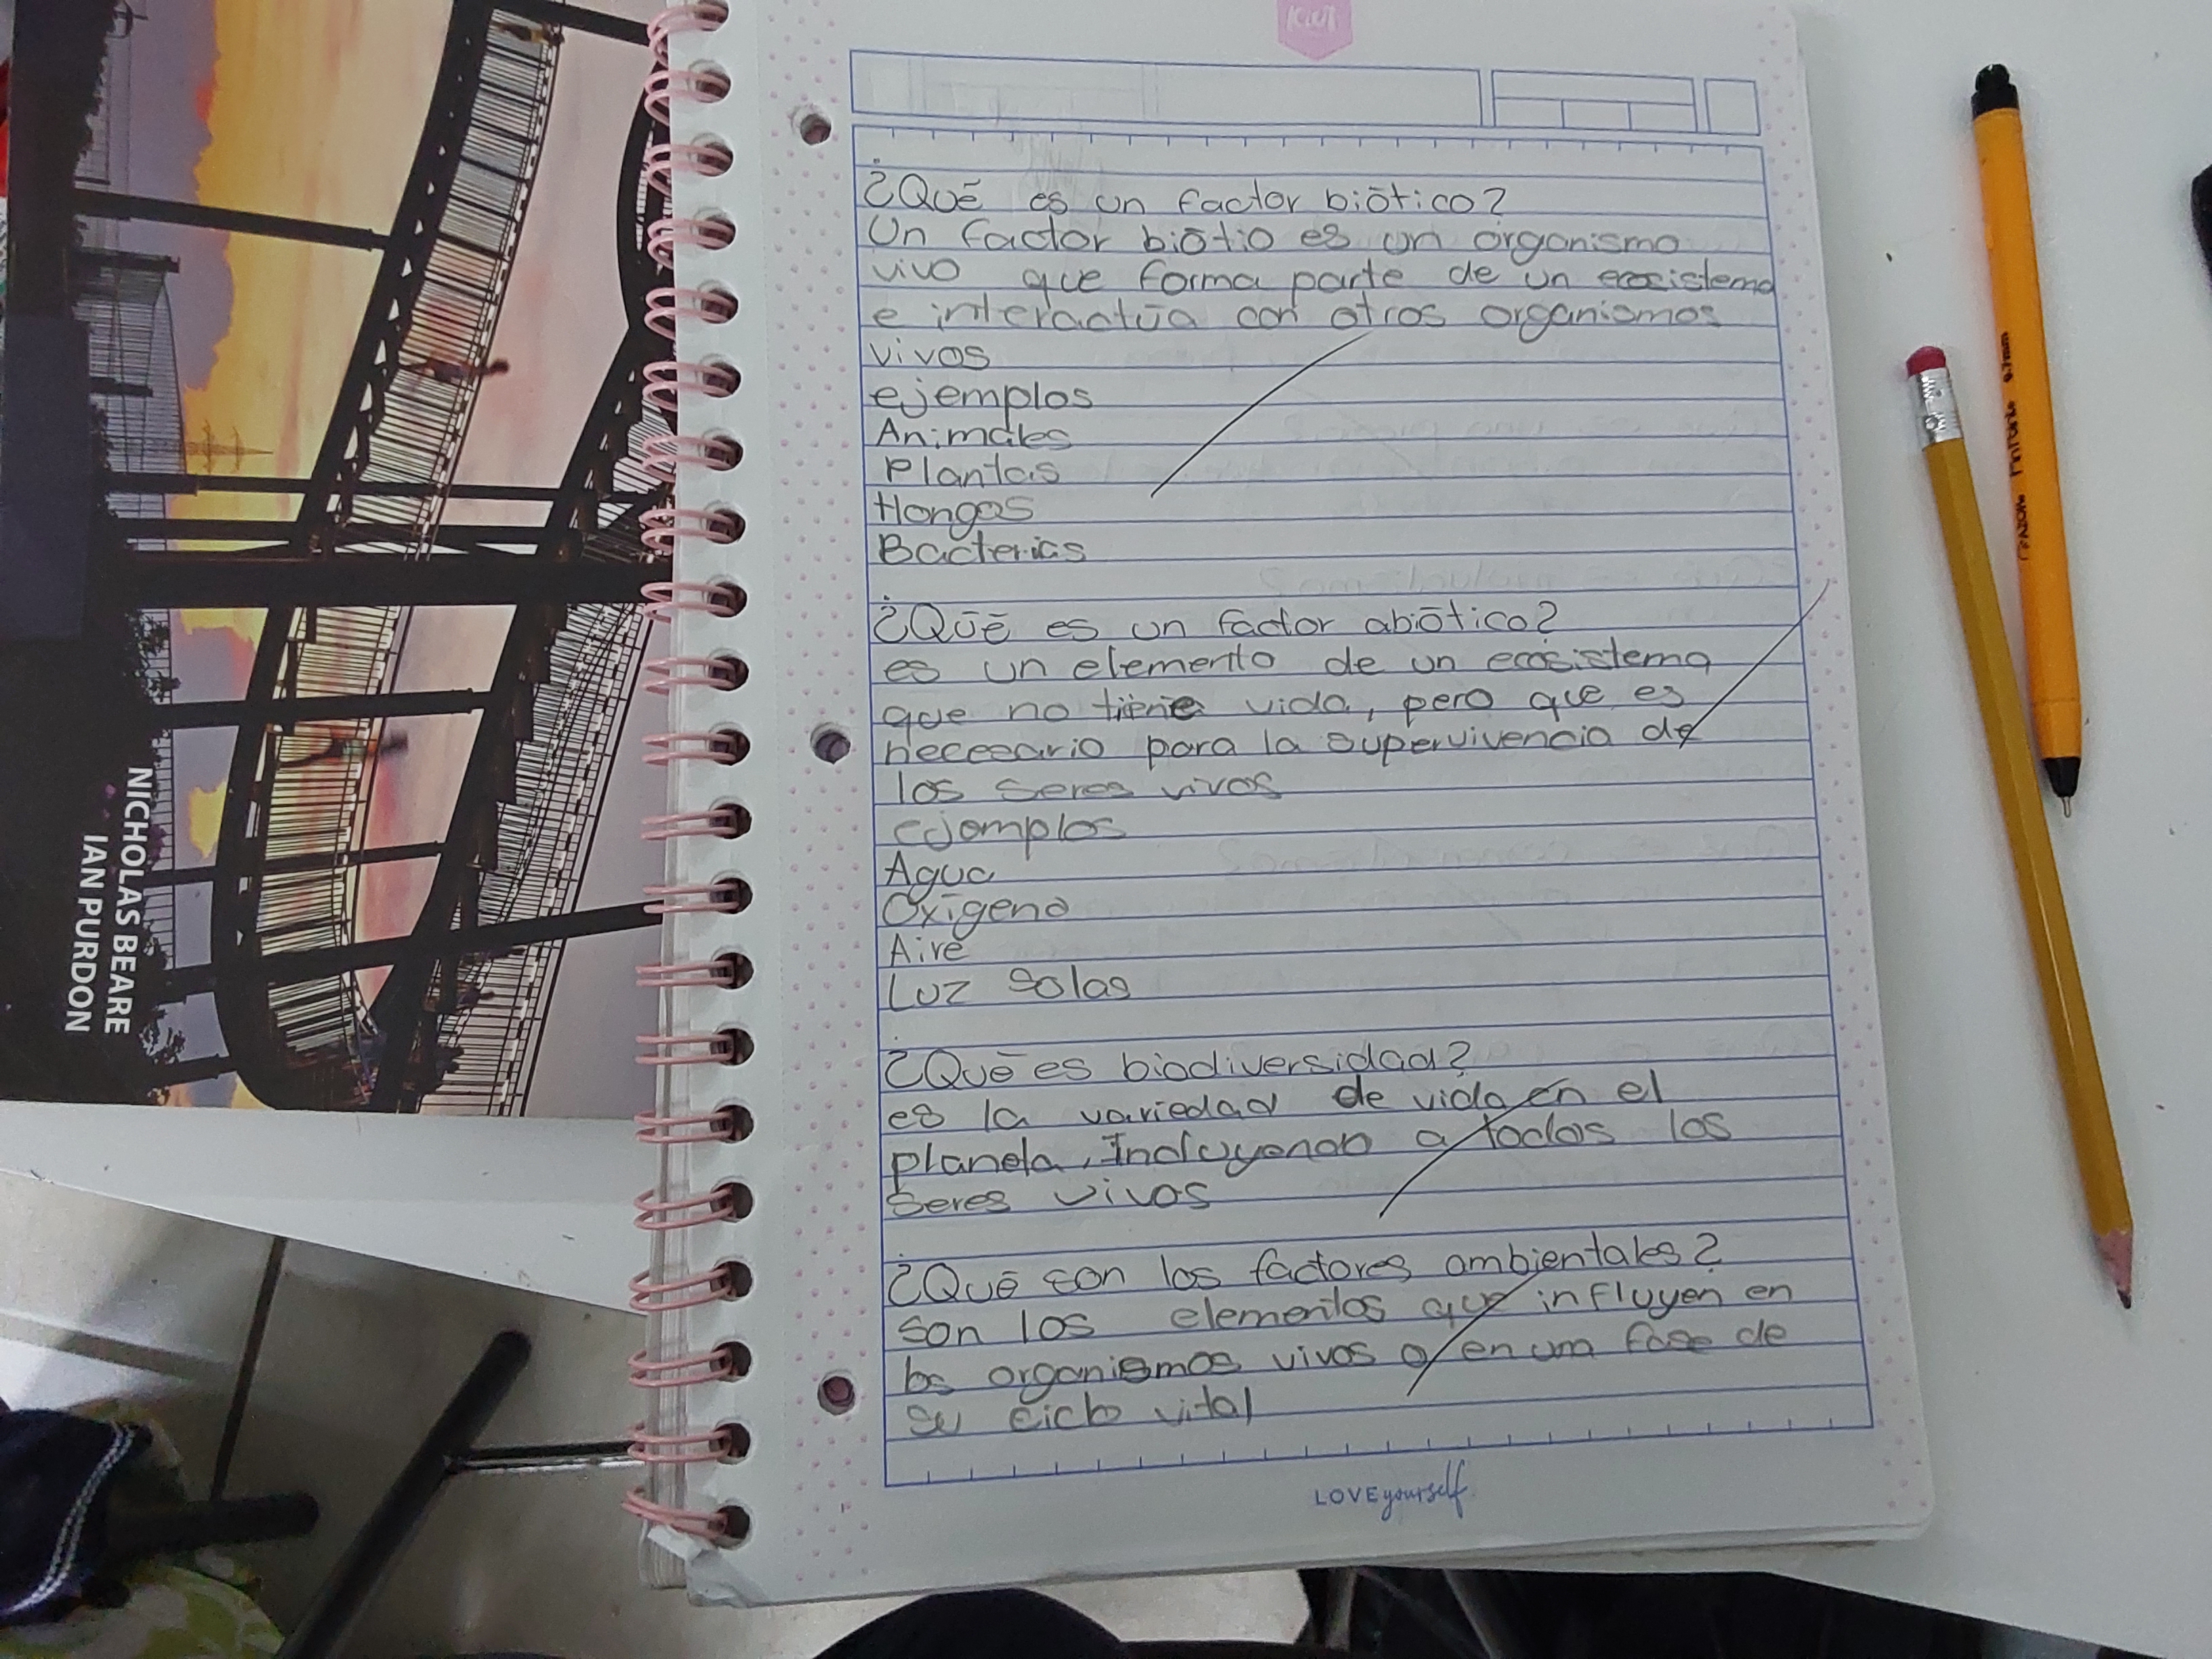 KIUT
¿Qué es un factor biótico?
Un factor biótio es un organismo
vivo que forma parte de un ecosistema
e interactúa con otros organismos
vivos
ejemplos
Animales
Plantas
Hongos
Bacterias
¿Qué es un factor abiótico?
es un elemento de un ecosistema
que no tiene vida, pero que es
necesario para la supervivencia de
los seres vivos
ejemplos
Agua
Oxígeno
Aire
Luz solas
¿Qué es biodiversidad?
es la variedad de vida en el
planeta, Incluyendo a todos los
seres vivos
¿Qué son los factores ambientales?
son los elementos que influyen en
los organismos vivos o en una fase de
su ciclo vital
LOVE yourself
NICHOLAS BEARE
IAN PURDON
0.7mm